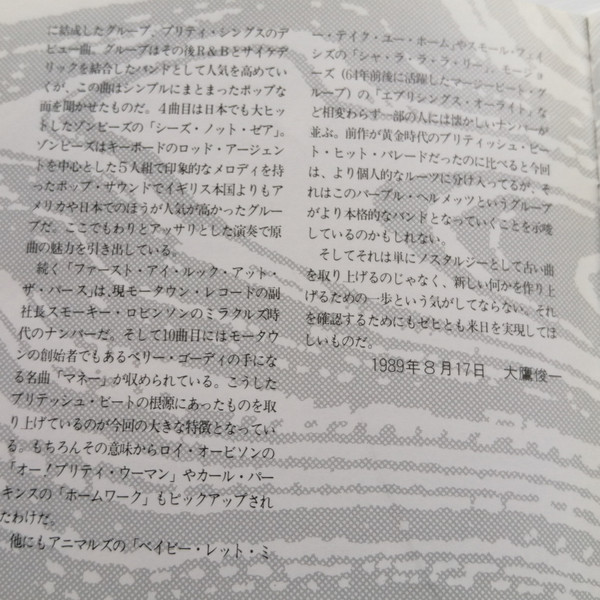 に結成したグループ、プリティ・シングスのデ
ビュー曲。グループはその後R&Bとサイケデ
リックを結合したバンドとして人気を高めてい
くが、この曲はシンプルにまとまったポップな
面を聞かせたものだ。4曲目は日本でも大ヒッ
トしたゾンビーズの「シーズ・ノット・ゼア」。
ゾンビーズはキーボードのロッド・アージェン
トを中心とした5人組で印象的なメロディを持
ったポップ・サウンドでイギリス本国よりもア
メリカや日本でのほうが人気が高かったグルー
プだ。ここでもわりとアッサリとした演奏で原
曲の魅力を引き出している。
続く「ファースト・アイ・ルック・アット・
ザ・パース」は、現モータウン・レコードの副
社長スモーキー・ロビンソンのミラクルズ時
代のナンバーだ。そして10曲目にはモータウ
ンの創始者でもあるベリー・ゴーディの手にな
る名曲「マネー」が収められている。こうした
ブリテッシュ・ビートの根源にあったものを取
り上げているのが今回の大きな特徴となってい
る。もちろんその意味からロイ・オービソンの
「オー!プリティ・ウーマン」やカール・パー
キンスの「ホームワーク」もピックアップされ
たわけだ。
他にもアニマルズの「ベイビー・レット・ミ
ー・テイク・ユー・ホーム」やスモール・フェイ
シズの「シャ・ラ・ラ・ラ・リー」、モージョ
ーズ（64年前後に活躍したマージービート・グ
ループ）の「エブリシングス・オーライト」な
ど相変わらず一部の人には懐かしいナンバーが
並ぶ。前作が黄金時代のブリティッシュ・ビー
ト・ヒット・パレードだったのに比べると今回
は、より個人的なルーツに分け入ってるが、そ
れはこのパープル・ヘルメッツというグループ
がより本格的なバンドとなっていくことを示唆
しているのかもしれない。
そしてそれは単にノスタルジーとして古い曲
を取り上げるのじゃなく、新しい何かを作り上
げるための一歩という気がしてならない。それ
を確認するためにもゼヒとも来日を実現してほ
しいものだ。
1989年8月17日 大鷹俊一